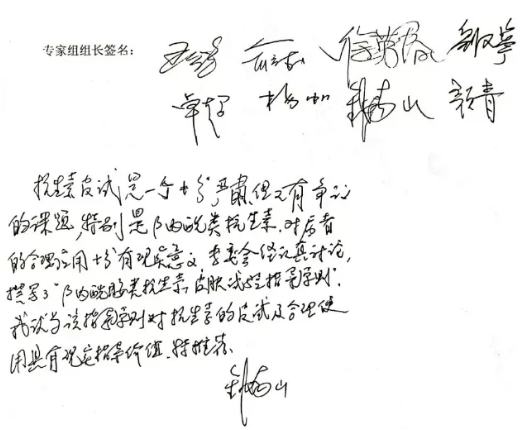 专家组组长签名：
卓超 杨帆 钟南山 颜青
抗生素皮试是一个十分严肃但又有争议
的课题，特别是β内酰类抗生素。对后者
的合理应用十分有现实意义 专委会经认真讨论，
撰写了“β内酰胺类抗生素皮肤试验指导原则”。
我认为该指导原则对抗生素的皮试及合理使
用具有现实指导价值，特推荐。
钟南山